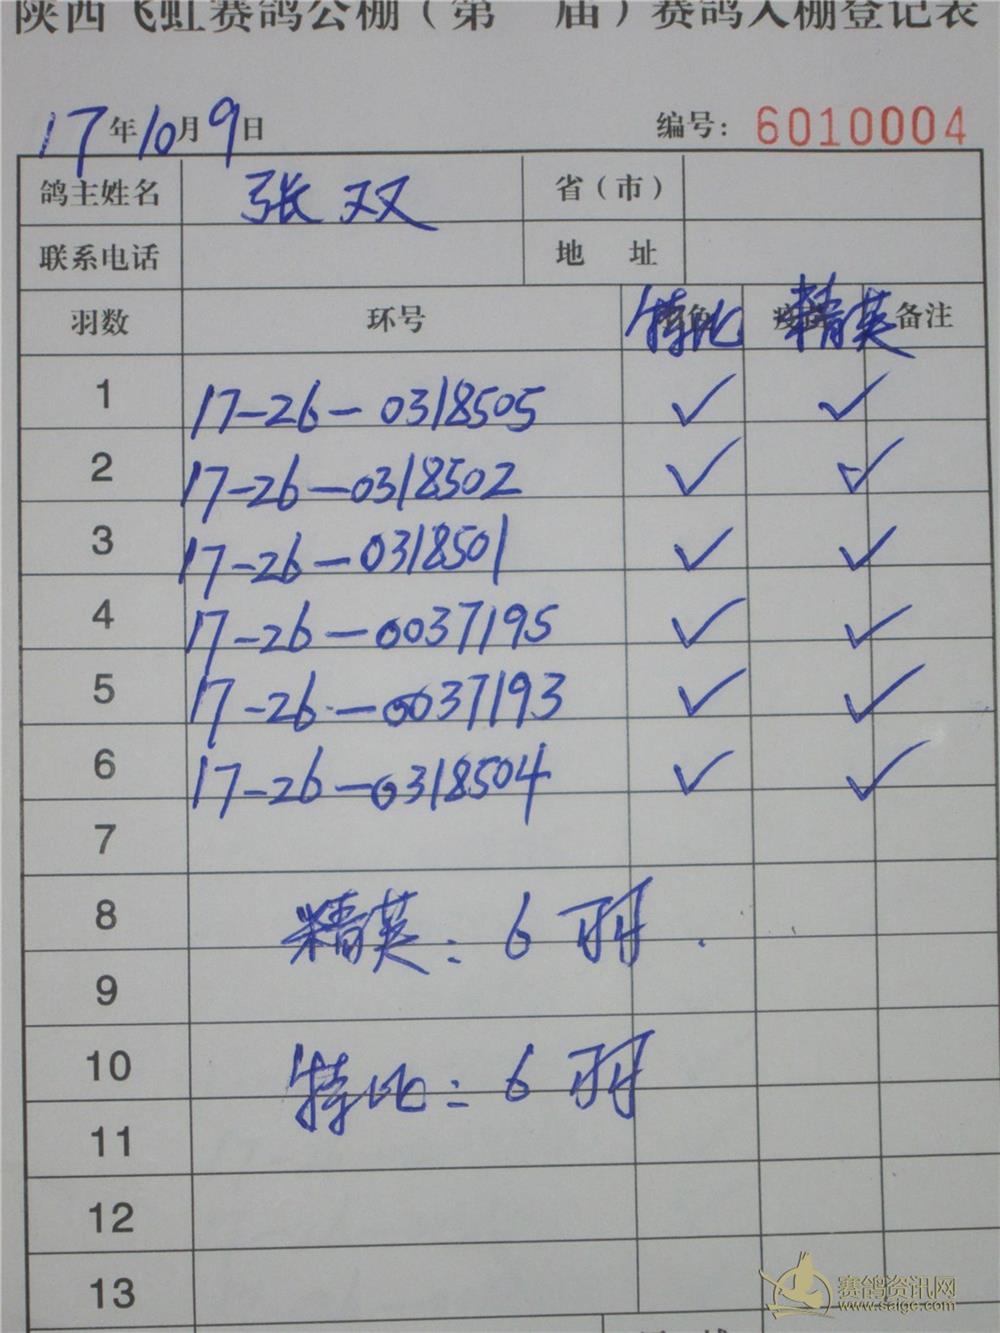 陕西飞虹赛鸽公棚（第 届）赛鸽入棚登记表
17年10月9日 编号：6010004
鸽主姓名 张双 省（市）
联系电话 地 址
羽数 环号 特比 精英 备注
1 17-26-0318505 ✓ ✓
2 17-26-0318502 ✓ ✓
3 17-26-0318501 ✓ ✓
4 17-26-0037195 ✓ ✓
5 17-26-0037193 ✓ ✓
6 17-26-0318504 ✓ ✓
7
8 精英：6羽.
9
10 特比：6羽
11
12
13
赛鸽资讯网
www.saige.com